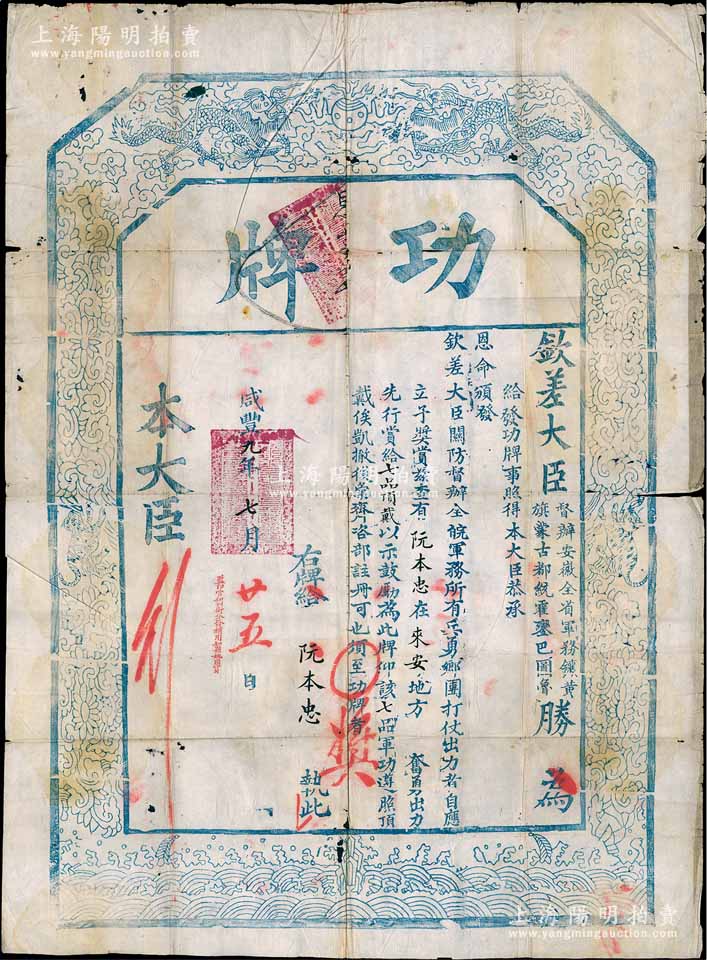 上海陽明拍賣
www.yangmingauction.com
功牌
欽差大臣督辦安徽全省軍務鑲黃
旗蒙古都統霍鑾巴圖魯勝為
給發功牌事照得本大臣恭承
恩命頒發
欽差大臣關防督辦全皖軍務所有兵勇鄉團打仗出力者自應
立予獎賞茲查有阮本忠在來安地方奮勇出力
先行賞給七品頂戴以示鼓勵為此牌仰該七品軍功遵照頂
戴俟凱撤後彙齊咨部註冊可也須至功牌者
獎
右牌給阮本忠執此
咸豐九年七月廿五日
本大臣
上海陽明拍賣
www.yangmingauction.com
上海陽明拍賣
www.yangmingauction.com